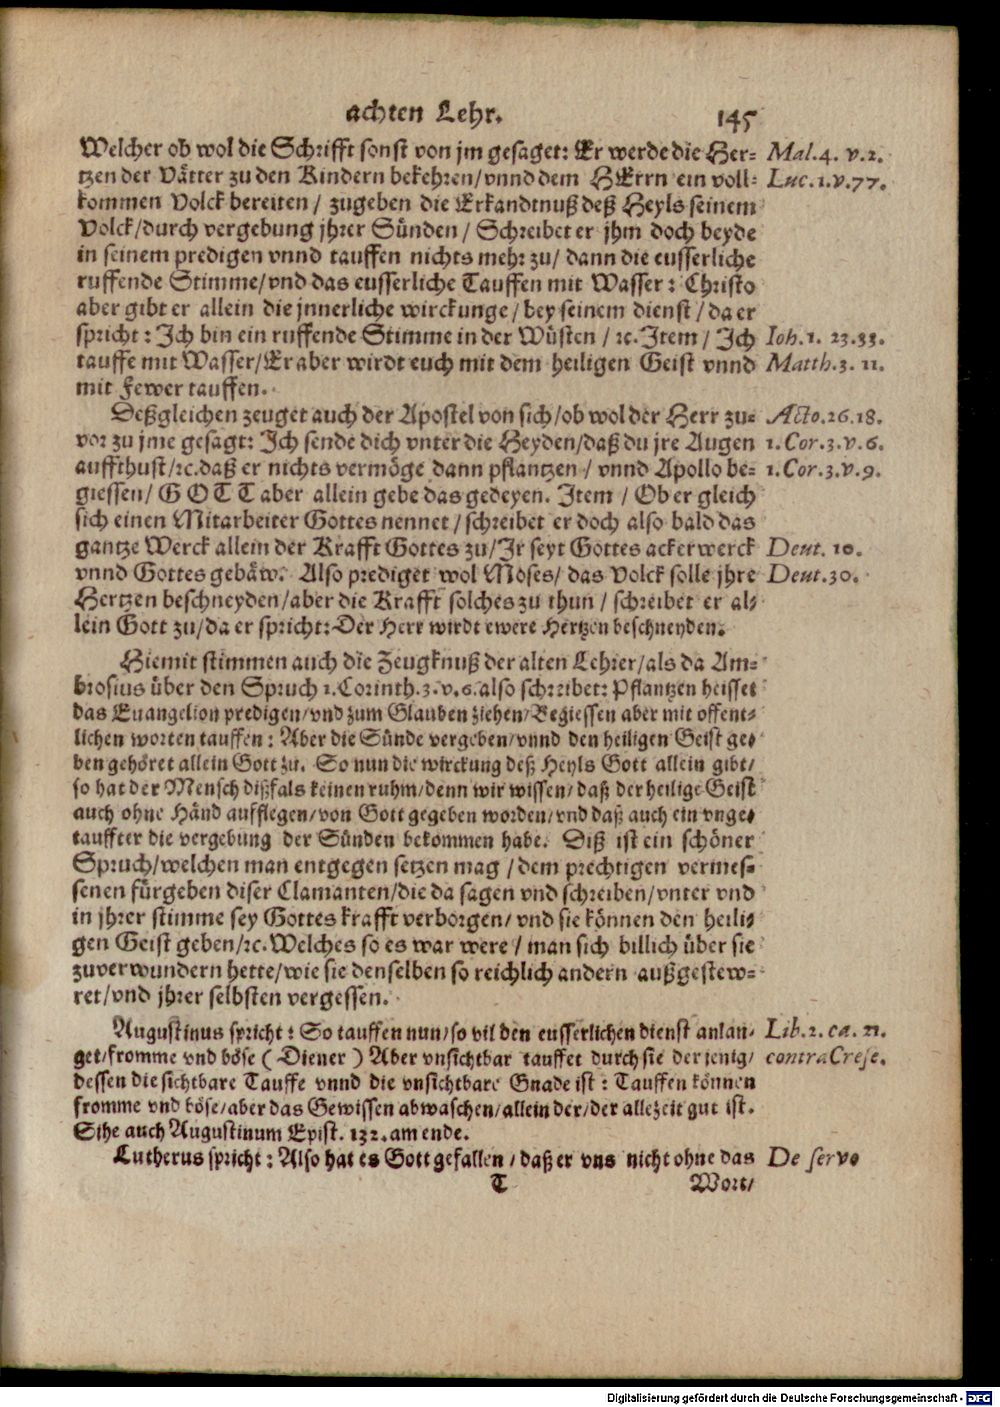 achten Lehr. 145
Welcher ob wol die Schrifft sonst von jm gesaget: Er werde die Her- Mal.4. v.2.
tzen der Vätter zu den Kindern bekehren/vnnd dem HErrn ein voll- Luc.1.v.77.
kommen Volck bereiten / zugeben die Erkandtnuß deß Heyls seinem
Volck/durch vergebung jhrer Sünden / Schreibet er jhm doch beyde
in seinem predigen vnnd tauffen nichts mehr zu/ dann die eusserliche
ruffende Stimme/vnd das eusserliche Tauffen mit Wasser: Christo
aber gibt er allein die jnnerliche wirckunge / bey seinem dienst / da er
spricht: Ich bin ein ruffende Stimme in der Wüsten / ꝛc. Item / Ich Ioh.1. 23.33.
tauffe mit Wasser/Er aber wirdt euch mit dem heiligen Geist vnnd Matth.3. 11.
mit Fewer tauffen.
Deßgleichen zeuget auch der Apostel von sich/ob wol der Herr zu- Acto.26.18.
vor zu jme gesagt: Ich sende dich vnter die Heyden/daß du jre Augen 1.Cor.3.v.6.
auffthust/ꝛc. daß er nichts vermöge dann pflantzen / vnnd Apollo be- 1.Cor.3.v.9.
giessen/ GOTT aber allein gebe das gedeyen. Item / Ob er gleich
sich einen Mitarbeiter Gottes nennet / schreibet er doch also bald das
gantze Werck allein der Krafft Gottes zu/Ir seyt Gottes ackerwerck Deut. 10.
vnnd Gottes gebäw. Also prediget wol Moses/ das Volck solle jhre Deut.30.
Hertzen beschneyden/aber die Krafft solches zu thun / schreibet er al-
lein Gott zu/da er spricht: Der Herr wirdt ewere Hertzen beschneyden.
Hiemit stimmen auch die Zeugknuß der alten Lehrer/als da Am-
brosius über den Spruch 1.Corinth.3.v.6. also schreibet: Pflantzen heisset
das Euangelion predigen/vnd zum Glauben ziehen/Begiessen aber mit offent-
lichen worten tauffen: Aber die Sünde vergeben/vnnd den heiligen Geist ge-
ben gehöret allein Gott zu. So nun die wirckung deß Heyls Gott allein gibt/
so hat der Mensch dißfals keinen ruhm/denn wir wissen/daß der heilige Geist
auch ohne Händ aufflegen/von Gott gegeben worden/vnd daß auch ein vnge-
tauffter die vergebung der Sünden bekommen habe. Diß ist ein schöner
Spruch/welchen man entgegen setzen mag / dem prechtigen vermes-
senen fürgeben diser Clamanten/die da sagen vnd schreiben/vnter vnd
in jhrer stimme sey Gottes krafft verborgen/ vnd sie können den heili-
gen Geist geben/ꝛc. Welches so es war were / man sich billich über sie
zuverwundern hette/wie sie denselben so reichlich andern außgestew-
ret/vnd jhrer selbsten vergessen.
Augustinus spricht: So tauffen nun/so vil den eusserlichen dienst anlan- Lib.2. ca. 21.
get/fromme vnd böse ( Diener ) Aber vnsichtbar tauffet durch sie der jenig/ contra Cresc.
dessen die sichtbare Tauffe vnnd die vnsichtbare Gnade ist: Tauffen können
fromme vnd böse/aber das Gewissen abwaschen/allein der/der allezeit gut ist.
Sihe auch Augustinum Epist. 132. am ende.
Lutherus spricht: Also hat es Gott gefallen / daß er vns nicht ohne das De servo
T Wort/
Digitalisierung gefördert durch die Deutsche Forschungsgemeinschaft - DFG